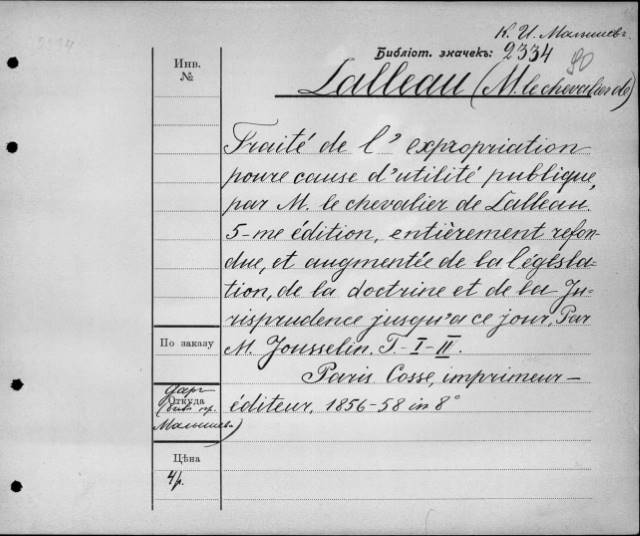 К. И. Малышевъ.
2334
Библіот. значекъ: 2334
90
Инв.
№
Lalleau (M. le chevalier de)
Traité de l'expropriation
poure cause d'utilité publique,
par M. le chevalier de Lalleau.
5-me édition, entièrement refon-
due, et augmentée de la législa-
tion, de la doctrine et de la Ju-
risprudence jusqu'a ce jour, Par
По заказу
M. Jousselin. T.-I-II.
Paris. Cosse, imprimeur-
даръ
Откуда
éditeur, 1856-58 in 8°
Малышева)
Цѣна
4 р.